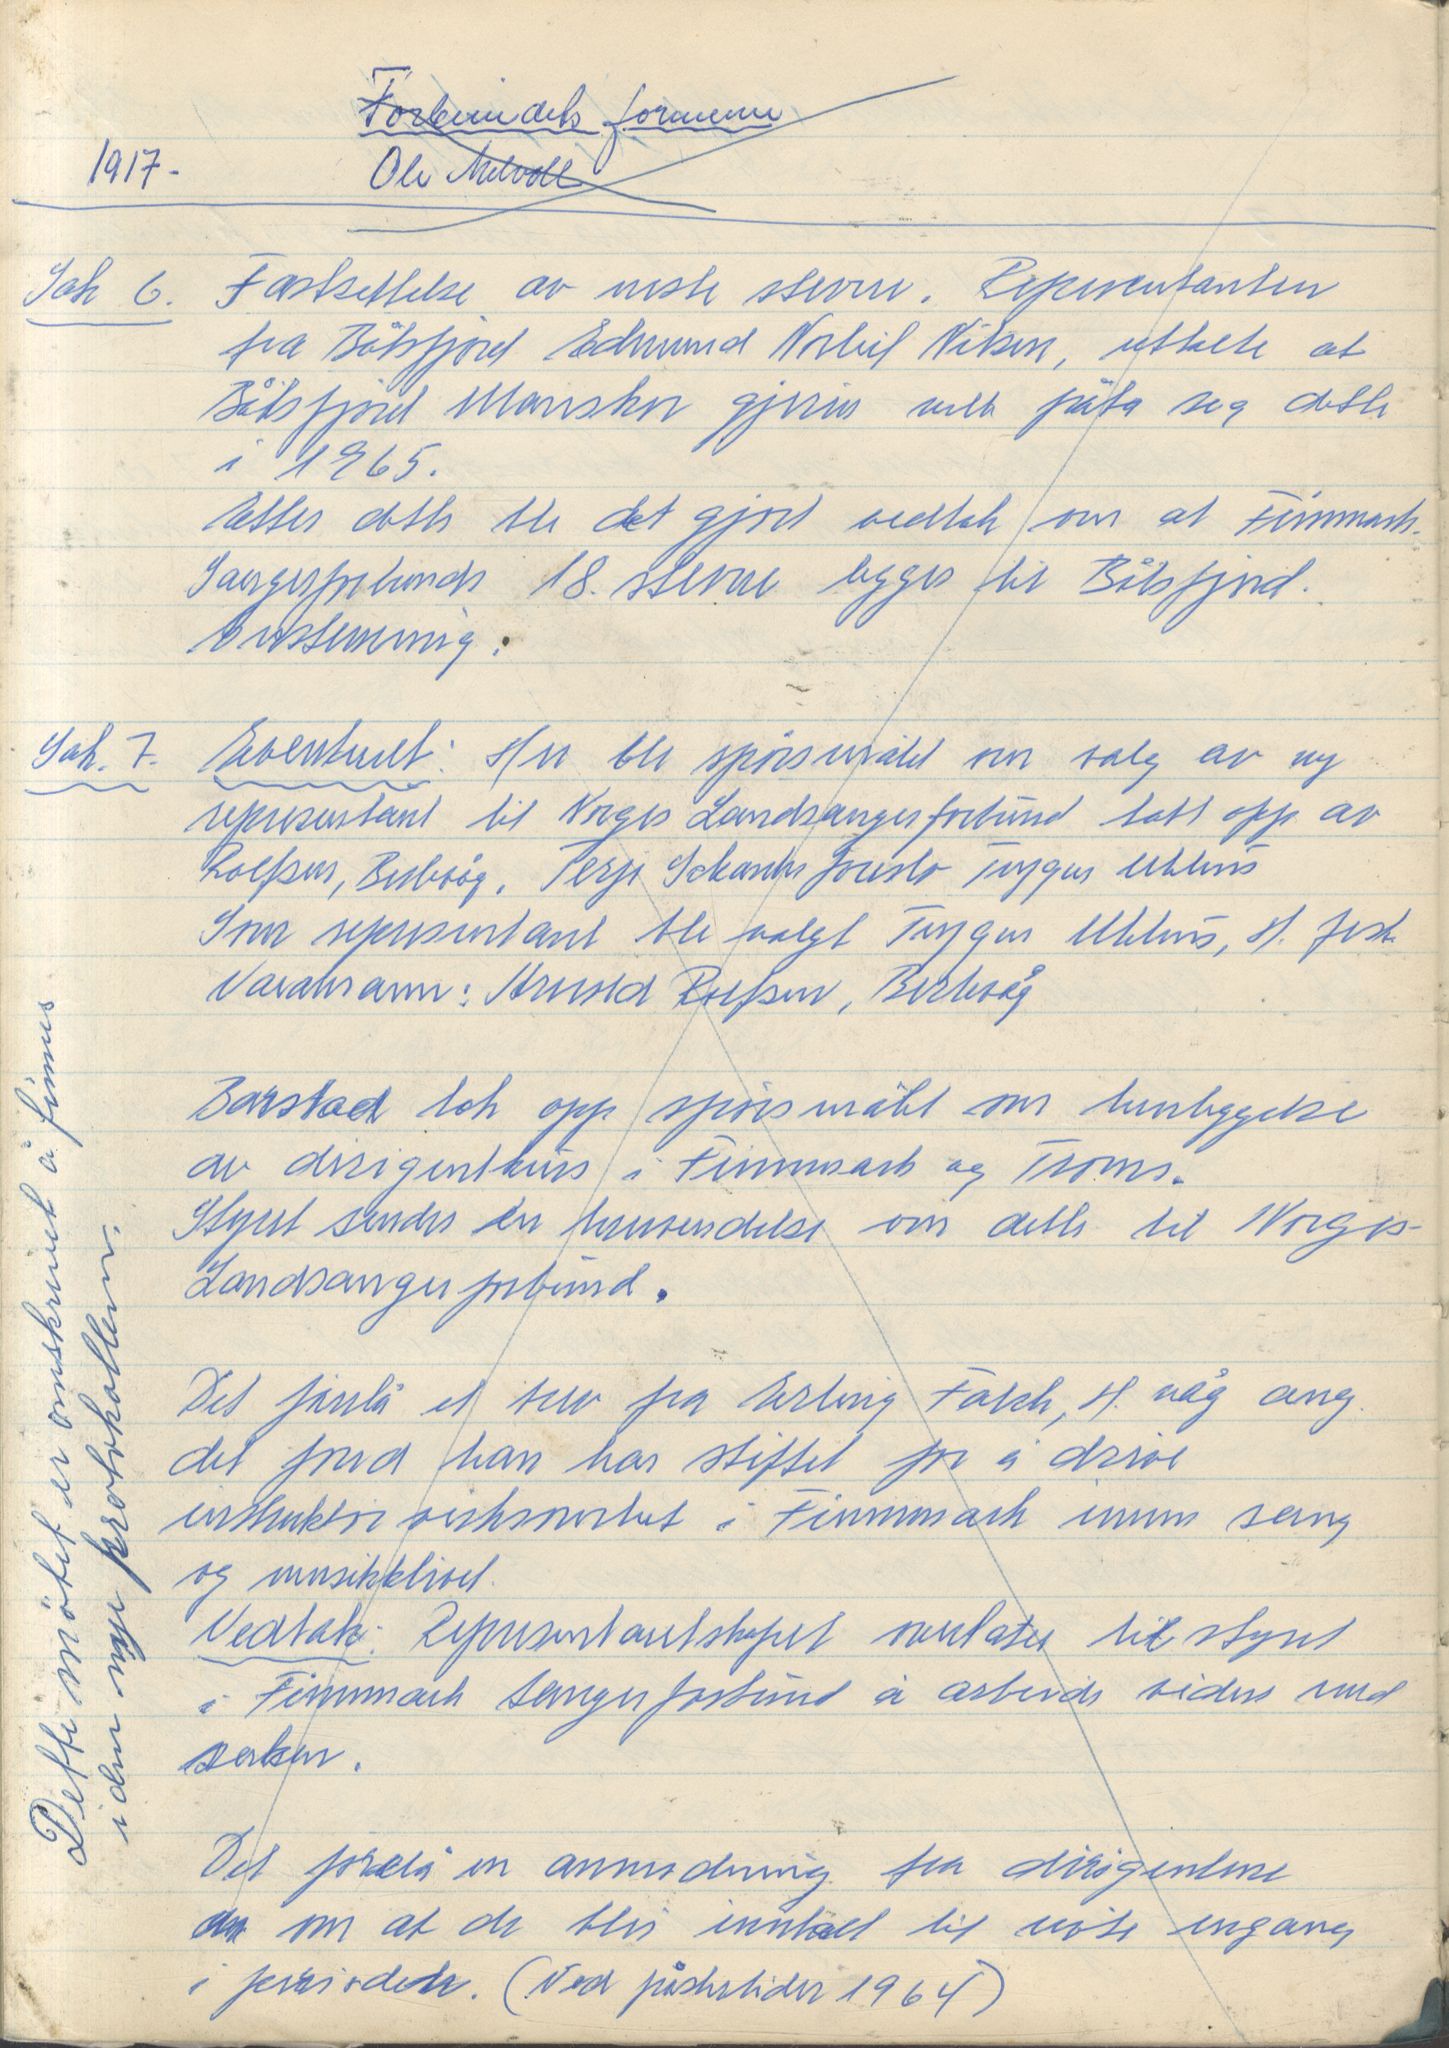 Forbundets formenn
1917- Ole Melvoll
Sak 6. Fastsettelse av neste stevne. Representanten
fra Båtsfjord Edmund Norleif Nilsen, uttalte at
Båtsfjord Mannskor gjerne ville påta seg dette
i 1965.
Etter dette ble det gjort vedtak om at Finnmark
Sangerforbunds 18. stevne legges til Båtsfjord.
Enstemmig.
Sak. 7. Eventuelt: Her ble spörsmålet om valg av ny
representant til Norges Landsangerforbund tatt opp av
Rolfsen, Berlevåg. Terje foreslo Trygve
Som representant ble valgt Trygve H. fest.
Varamann: Arnold Rolfsen, Berlevåg
Barstad tok opp spörsmålet om henleggelse
av dirigentkurs i Finnmark og Troms.
Styret sender en henvendelse om dette til Norges
Landsangerforbund.
Det forelå et brev fra Erling H. våg ang.
det fond han har stiftet for å drive
instruktörvirksomhet i Finnmark innen sang
og musikklivet.
Vedtak: Representantskapet overlater til styret
i Finnmark sangerforbund å arbeide videre med
saken.
Det forelå en anmodning fra dirigentene
om at de blir innkalt til möte engang
i perioden. (Ved påsketider 1964)
Dette mötet er omskrevet å finnes
i den nye protokollen.